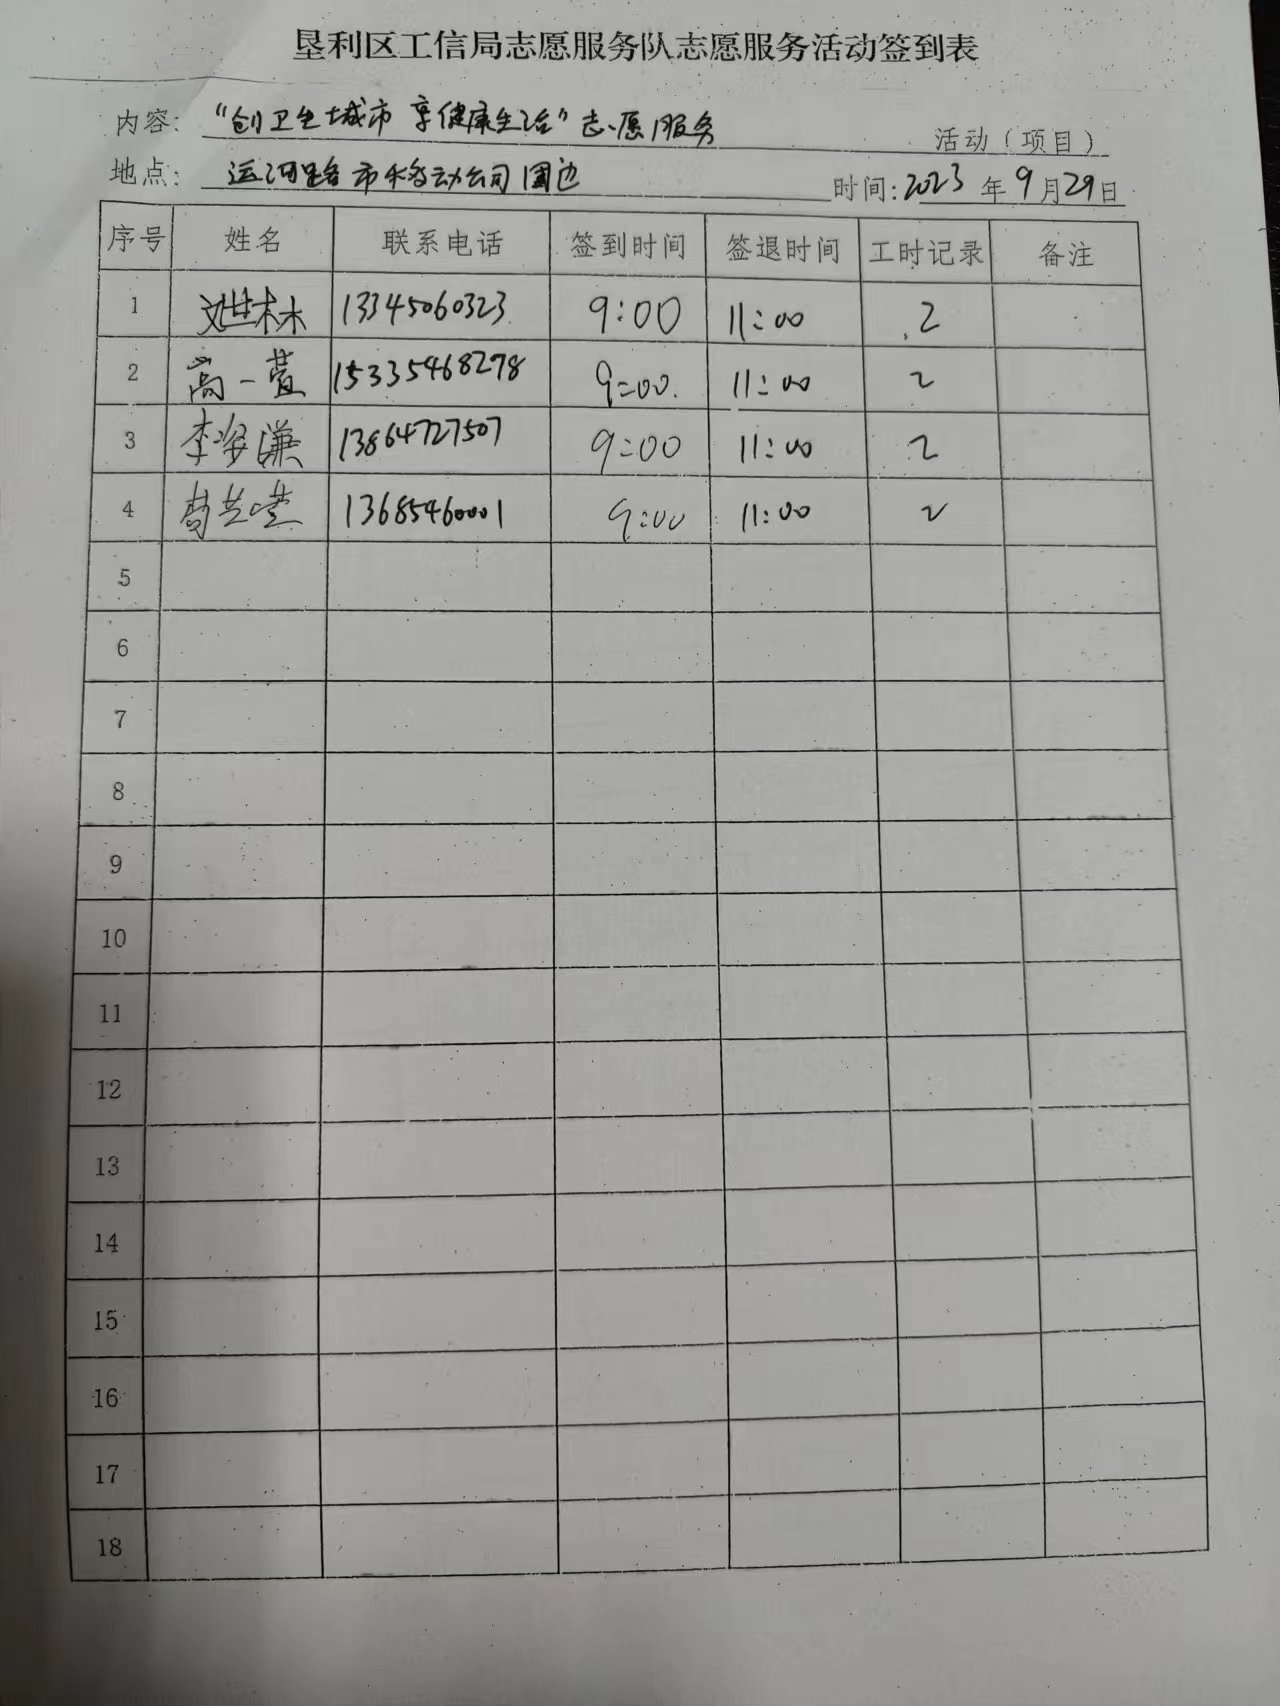 垦利区工信局志愿服务队志愿服务活动签到表
内容: “创卫生城市 享健康生活”志愿服务 活动(项目)
地点: 运河路市移动公司周边 时间: 2023 年 9 月 29 日
序号 姓名 联系电话 签到时间 签退时间 工时记录 备注
1 13345060323 9:00 11:00 2
2 高一萱 15335468278 9:00 11:00 2
3 李 谦 13864727507 9:00 11:00 2
4 13685460001 9:00 11:00 2
5
6
7
8
9
10
11
12
13
14
15
16
17
18